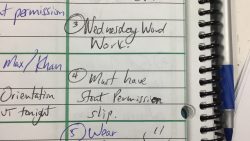 t permission
Max/Khan
Orientation
UT tonight
③ Wednesday Word
Work!
④ Must have
Start Permission
slip.
⑤ Wear